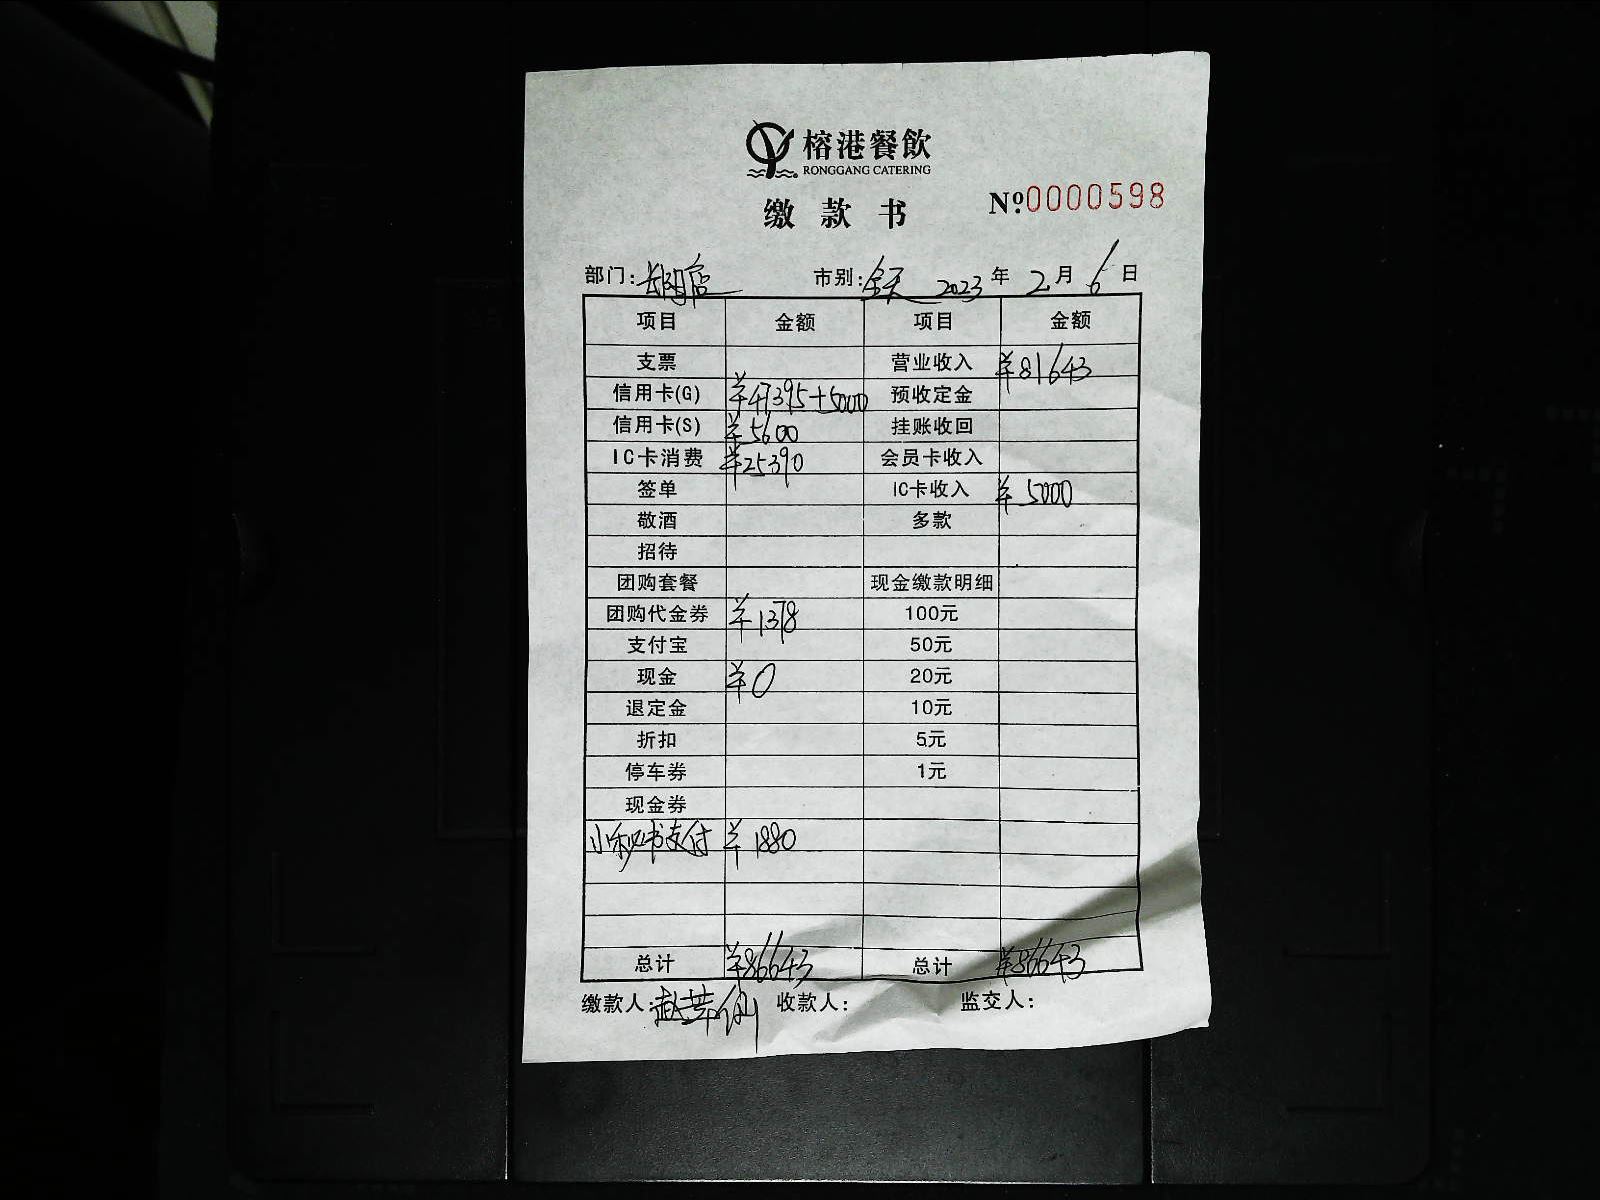 榕港餐飲
RONGGANG CATERING
缴款书 №0000598
部门: 长阳店 市别: 全天 2023年2月6日
项目 金额 项目 金额
支票 营业收入 ¥81643
信用卡(G) ¥47395+5000 预收定金
信用卡(S) ¥5600 挂账收回
IC卡消费 ¥25390 会员卡收入
签单 IC卡收入 ¥5000
敬酒 多款
招待
团购套餐 现金缴款明细
团购代金券 ¥1378 100元
支付宝 50元
现金 ¥0 20元
退定金 10元
折扣 5元
停车券 1元
现金券
小秘书支付 ¥1880
总计 ¥86643 总计 ¥86643
缴款人: 赵 仙 收款人: 监交人: